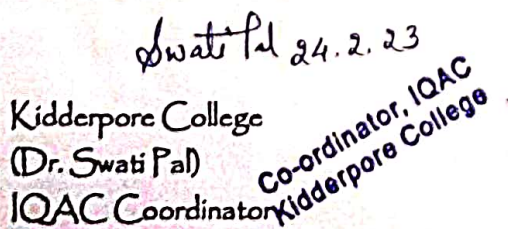 Swati Pal 24.2.23
Kidderpore College
(Dr. Swati Pal)
IQAC Coordinator
Co-ordinator, IQAC
Kidderpore College